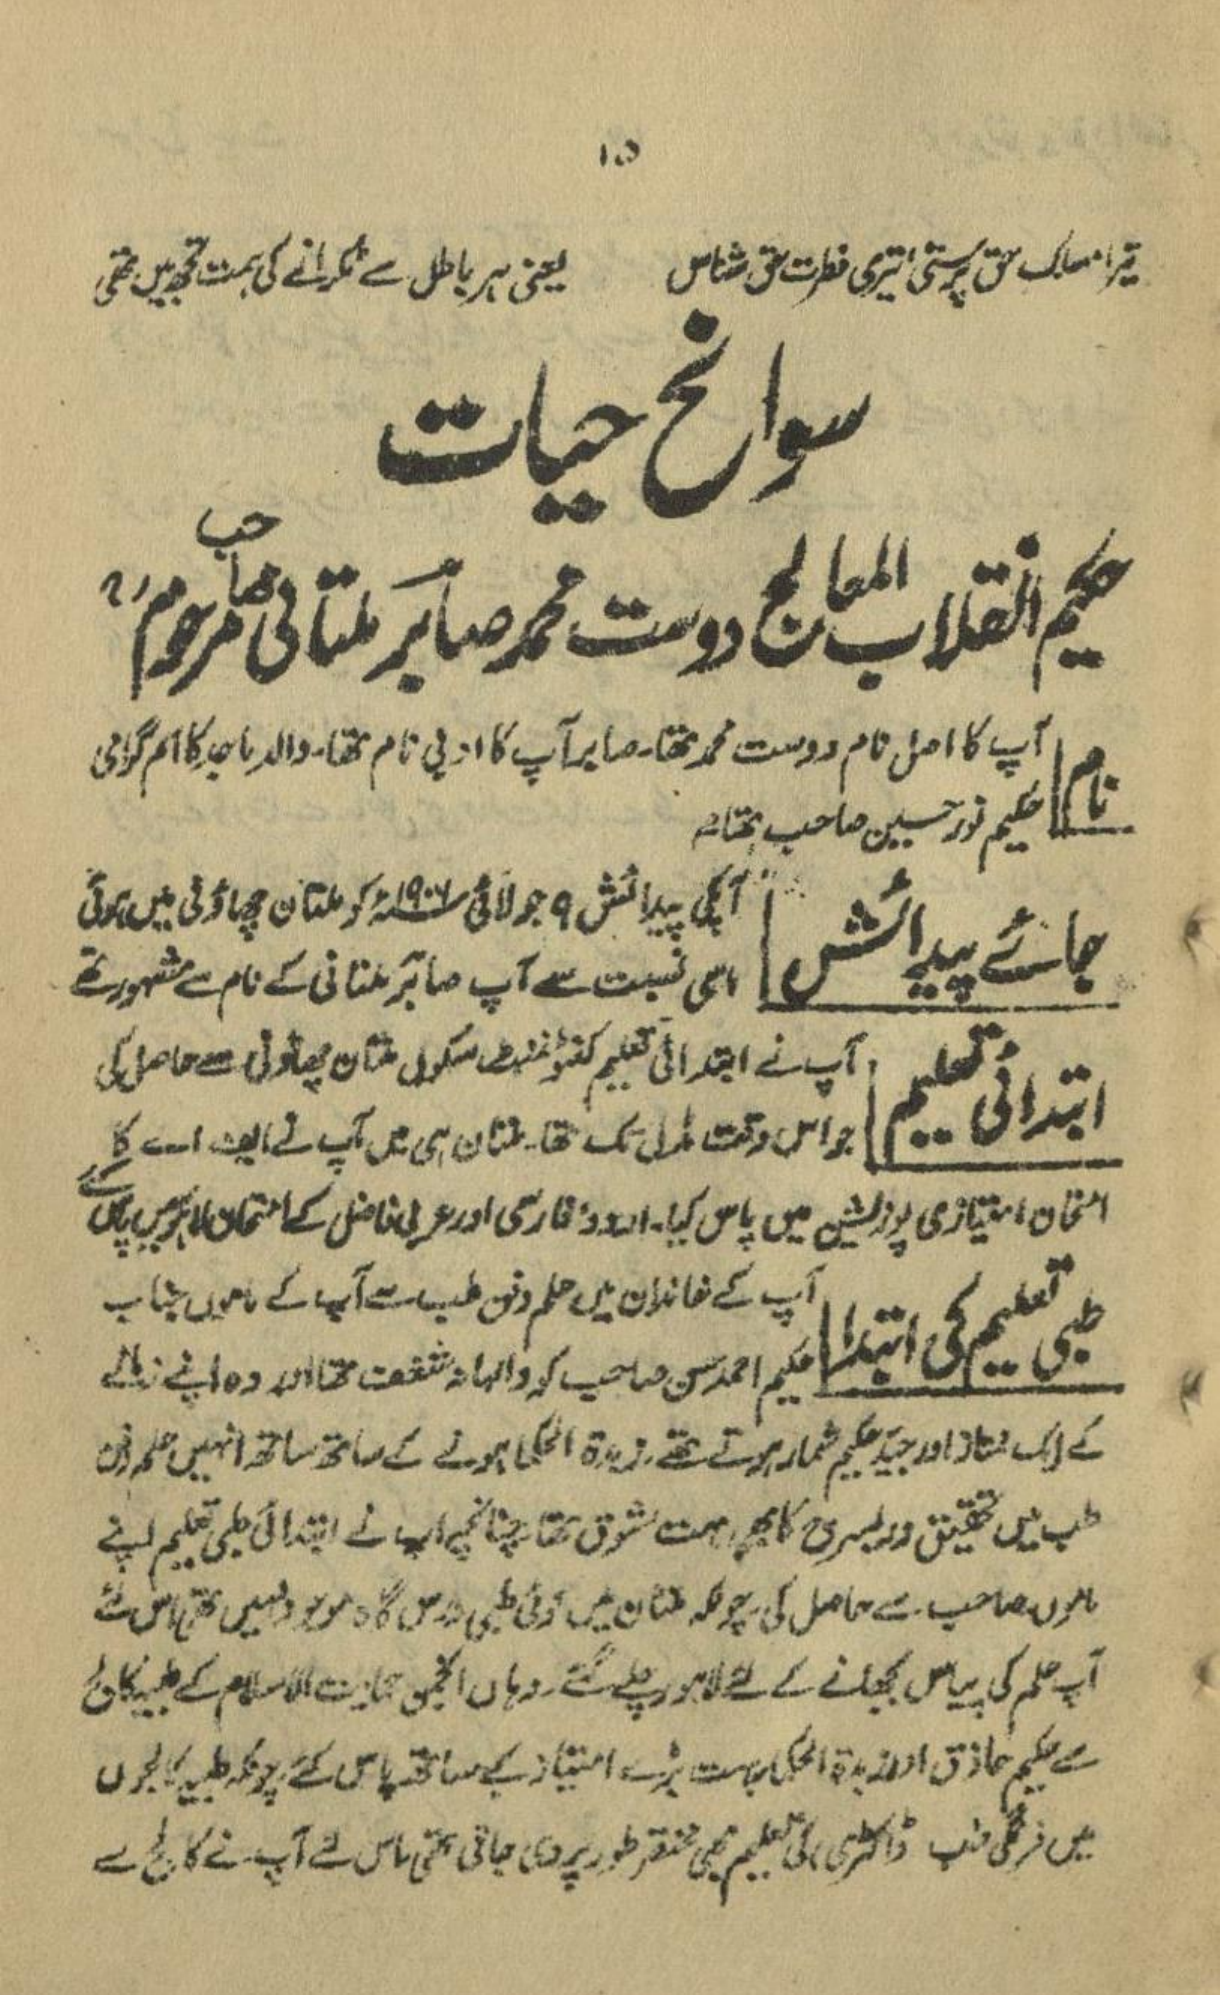 ۱۵
تیرا مسلک حق پرستی تیری فطرت حق شناس یعنی ہر باطل سے ٹکرانے کی ہمت تجھ میں تھی
سوانح حیات
حکیم انقلاب المعالج دوست محمد صابر ملتانی صاحب مرحوم
نام آپ کا اصل نام دوست محمد تھا۔ صابر آپ کا ادبی نام تھا۔ والد ماجد کا اسم گرامی
حکیم نور حسین صاحب تھا۔
جائے پیدائش آپکی پیدائش ۹ جولائی ۱۹۰۶ء کو ملتان چھاؤنی میں ہوئی
اسی نسبت سے آپ صابر ملتانی کے نام سے مشہور تھے
ابتدائی تعلیم آپ نے ابتدائی تعلیم کنٹونمنٹ سکول ملتان چھاؤنی سے حاصل کی
جو اس وقت مڈل تک تھا۔ ملتان ہی میں آپ نے ایف اے کا
امتحان امتیازی پوزیشن میں پاس کیا۔ اردو، فارسی اور عربی فاضل کے امتحان لاہور میں پاس کئے
طبی تعلیم کی ابتدا آپ کے خاندان میں علم و فن طب سے آپ کے ماموں جناب
حکیم احمد حسن صاحب کو والہانہ شغف تھا اور وہ اپنے زمانے
کے ایک ممتاز اور جید حکیم شمار ہوتے تھے۔ زبدۃ الحکما ہونے کے ساتھ ساتھ انہیں علم و فن
طب میں تحقیق و ریسرچ کا بھی بہت شوق تھا۔ چنانچہ آپ نے ابتدائی طبی تعلیم اپنے
ماموں صاحب سے حاصل کی۔ چونکہ ملتان میں کوئی طبی درس گاہ موجود نہیں تھی اس لئے
آپ علم کی پیاس بجھانے کے لئے لاہور چلے گئے۔ وہاں انجمن حمایت الاسلام کے طبیہ کالج
سے حکیم حاذق اور زبدۃ الحکما بہت بڑے امتیاز کے ساتھ پاس کئے۔ چونکہ طبیہ کالجوں
میں فرنگی طب ڈاکٹری کی تعلیم بھی مختصر طور پر دی جاتی تھی اس لئے آپ نے کالج سے